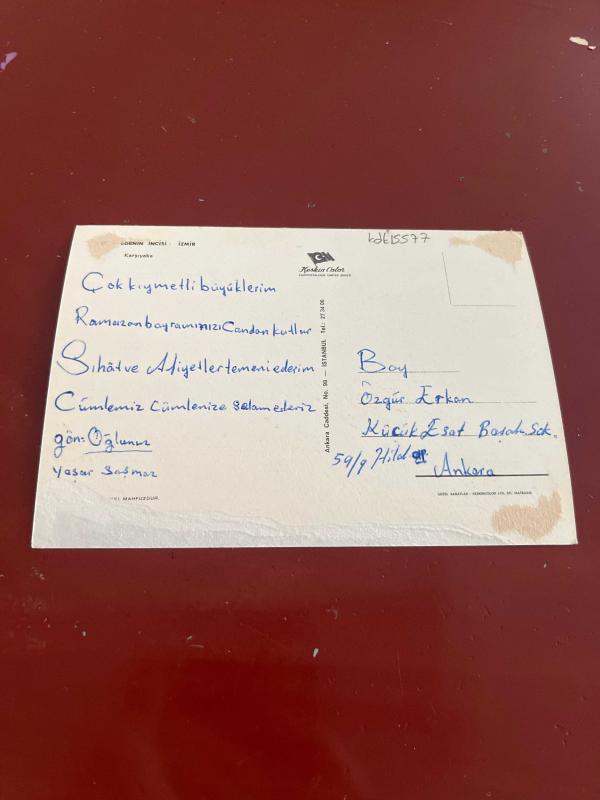 İNCİSİ : İZMİR
Karşıyaka
Keskin Color
Çok kıymetli büyüklerim
Ramazan bayramınızı Candan kutlar
Sıhât ve Afiyetler temeni ederim
Cümlemiz Cümlenize selam ederiz
gön: Oğlunuz
Yaşar Şaşmaz
MAHFUZDUR.
Ankara Caddesi. No. 98 — İSTANBUL Tel.: 27 34 06
Bay
Özgür Erkan
Küçük Esat Başak Sok.
59/9
Ankara